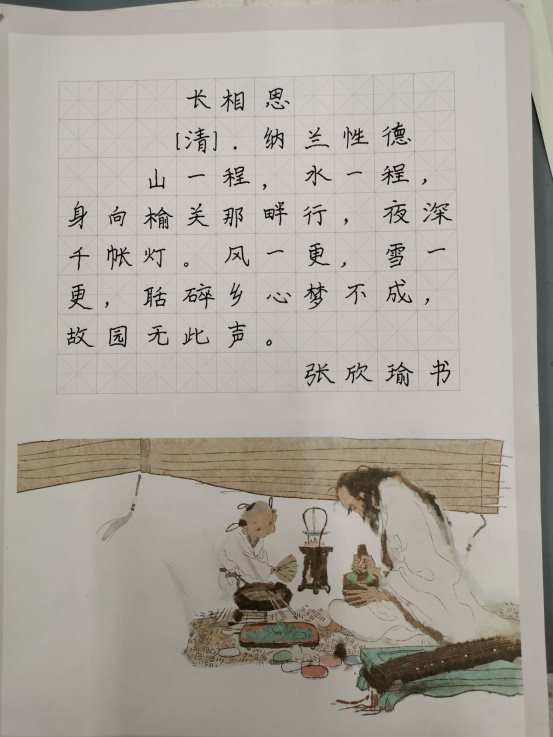 长相思
[清].纳兰性德
山一程，水一程，
身向榆关那畔行，夜深
千帐灯。风一更，雪一
更，聒碎乡心梦不成，
故园无此声。
张欣瑜书